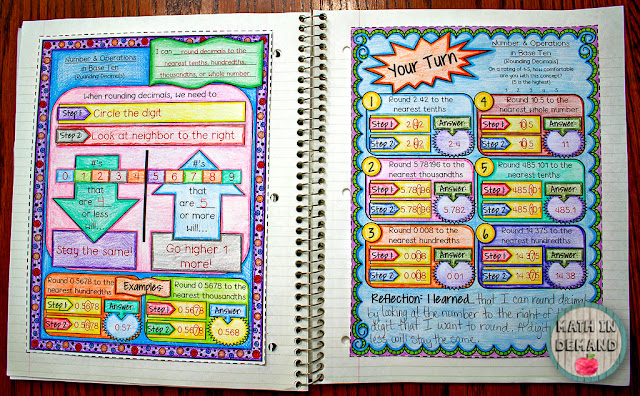 Number & Operations
in Base Ten
(Rounding Decimals)
I can round decimals to the
nearest tenths, hundredths,
thousandths, or whole number.
When rounding decimals, we need to:
Step 1 Circle the digit
Step 2 Look at neighbor to the right
#'s
#'s
0 1 2 3 4 5 6 7 8 9
that
are 4
or less
will...
that
are 5
or more
will...
Stay the same!
Go higher 1
more!
Examples:
Round 0.5678 to the
nearest hundredths
Step 1 0.5678
Step 2 0.5678
Answer
0.57
Round 0.5678 to the
nearest thousandths
Step 1 0.5678
Step 2 0.5678
Answer
0.568
Your Turn
Number & Operations
in Base Ten
(Rounding Decimals)
On a rating of 1-5, how comfortable
are you with this concept?
(5 is the highest)
1 2 3 4 5
1 Round 2.42 to the
nearest tenths
Step 1 2.42
Step 2 2.42
Answer
2.4
2 Round 5.78196 to the
nearest thousandths
Step 1 5.78196
Step 2 5.78196
Answer
5.782
3 Round 0.008 to the
nearest hundredths
Step 1 0.008
Step 2 0.008
Answer
0.01
4 Round 10.5 to the
nearest whole number
Step 1 10.5
Step 2 10.5
Answer
11
5 Round 485.101 to the
nearest tenths
Step 1 485.101
Step 2 485.101
Answer
485.1
6 Round 14.375 to the
nearest hundredths
Step 1 14.375
Step 2 14.375
Answer
14.38
Reflection: I learned that I can round decimals
by looking at the number to the right of the
digit that I want to round. A digit
less will stay the same.
MATH IN
DEMAND